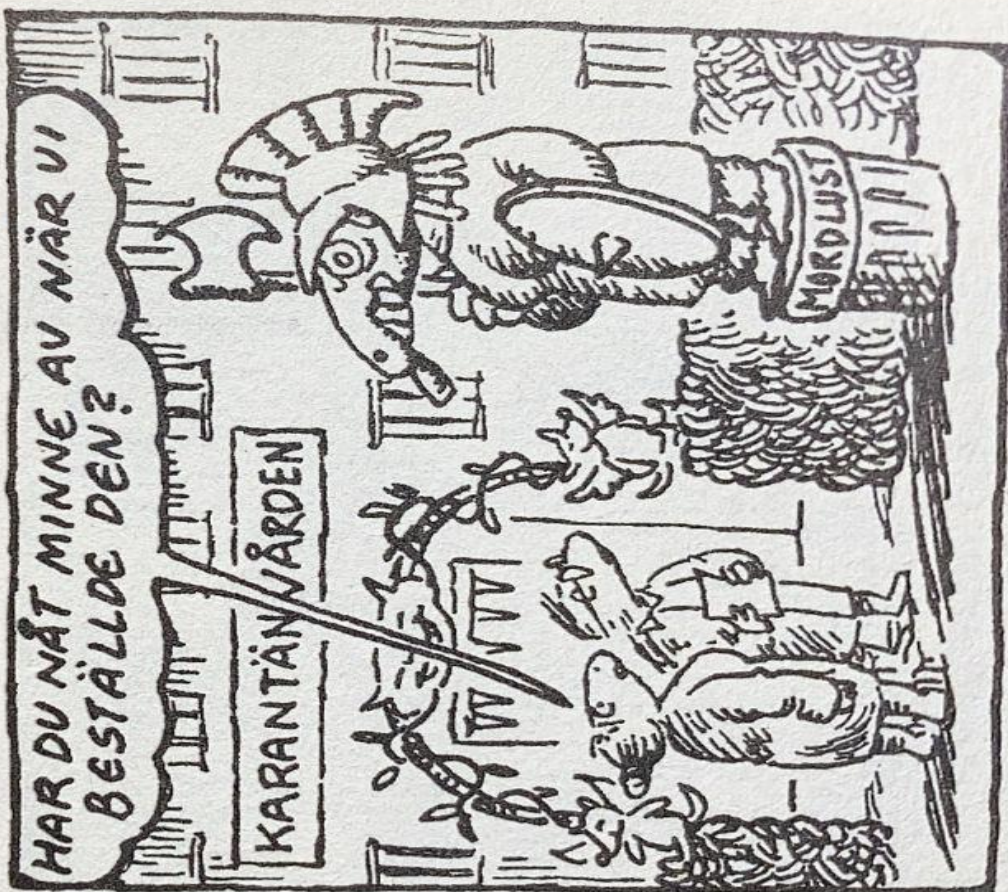 HAR DU NÅT MINNE AV NÄR VI
BESTÄLLDE DEN?
KARANTÄNVÅRDEN
MORDLUST